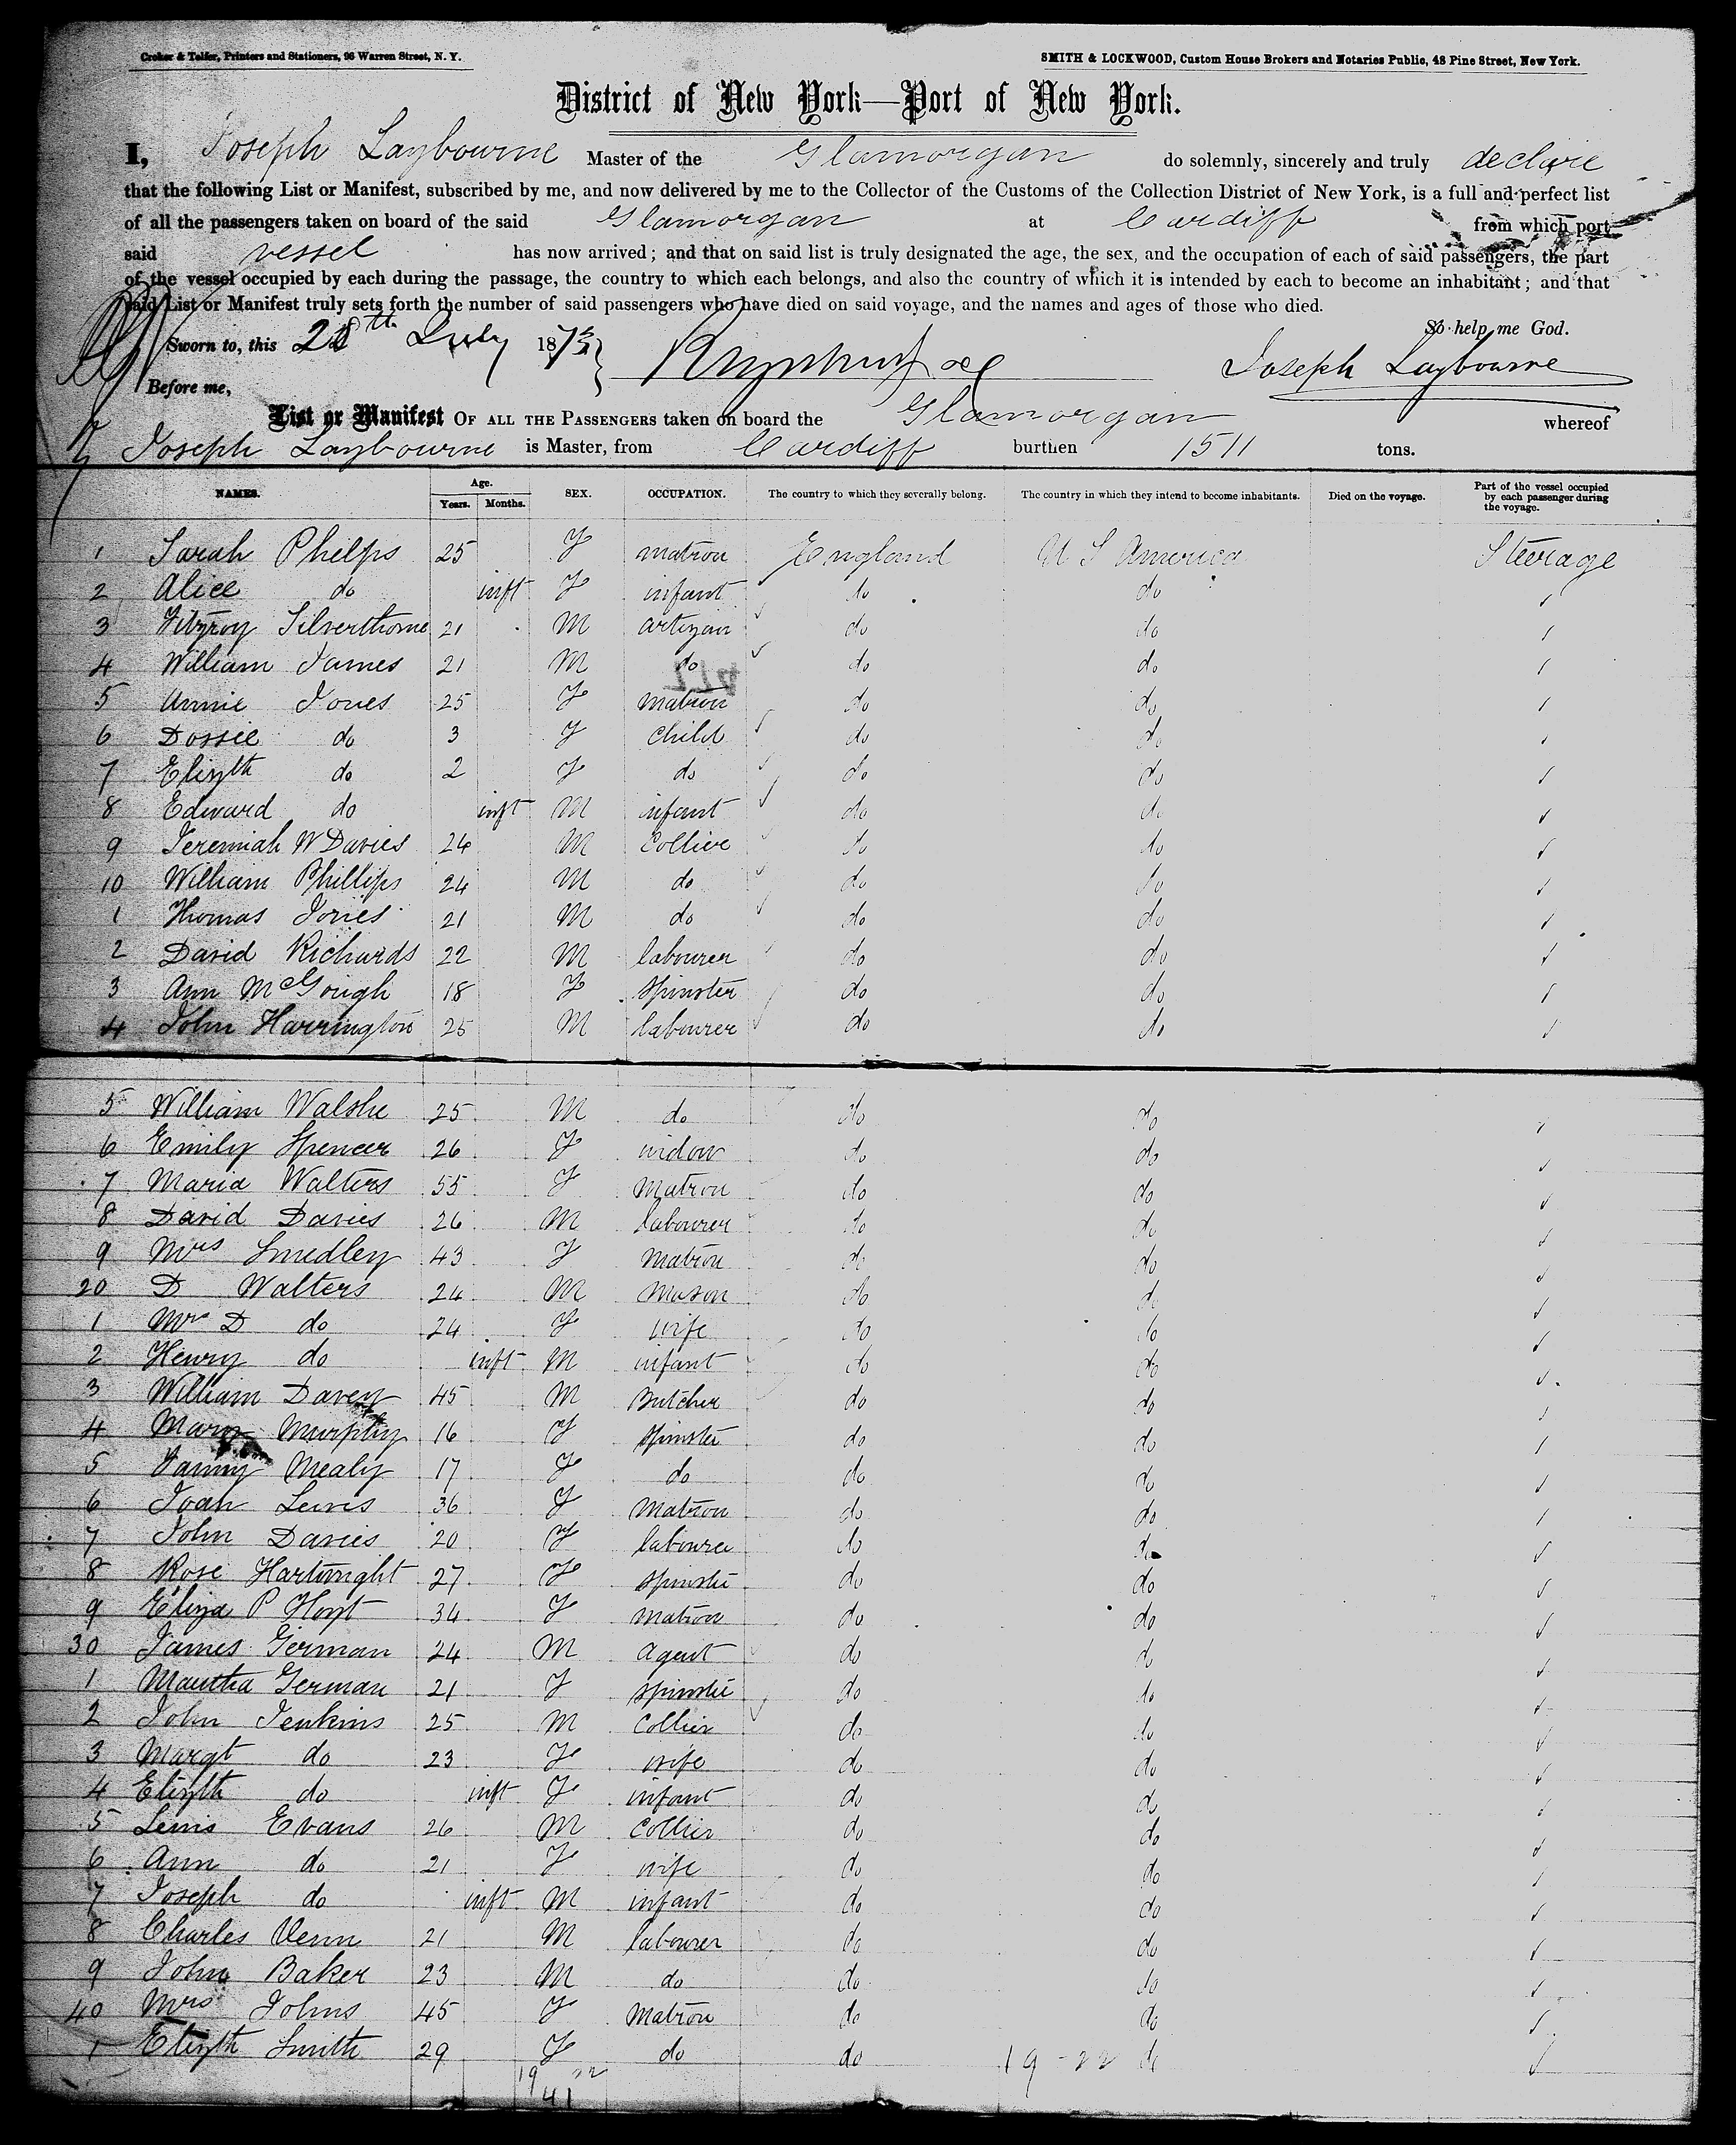 Croker & Telfer, Printers and Stationers, 96 Warren Street, N. Y.
SMITH & LOCKWOOD, Custom House Brokers and Notaries Public, 48 Pine Street, New York.
District of New York—Port of New York.
I, Joseph Laybourne Master of the Glamorgan do solemnly, sincerely and truly declare
that the following List or Manifest, subscribed by me, and now delivered by me to the Collector of the Customs of the Collection District of New York, is a full and perfect list
of all the passengers taken on board of the said Glamorgan at Cardiff from which port
said vessel has now arrived; and that on said list is truly designated the age, the sex, and the occupation of each of said passengers, the part
of the vessel occupied by each during the passage, the country to which each belongs, and also the country of which it is intended by each to become an inhabitant; and that
said List or Manifest truly sets forth the number of said passengers who have died on said voyage, and the names and ages of those who died.
So help me God.
Sworn to, this 28th July 1873 Joseph Laybourne
Before me,
List or Manifest OF ALL THE PASSENGERS taken on board the Glamorgan whereof
Joseph Laybourne is Master, from Cardiff burthen 1511 tons.
NAMES. Age. Years. Months. SEX. OCCUPATION. The country to which they severally belong. The country in which they intend to become inhabitants. Died on the voyage. Part of the vessel occupied by each passenger during the voyage.
1 Sarah Phelps 25 F matron England U S America Steerage
2 Alice do inft F infant do do
3 Fitzroy Silverthorne 21 M artizan do do
4 William James 21 M do do do
5 Annie Jones 25 F matron do do
6 Dossie do 3 F child do do
7 Elizth do 2 F do do do
8 Edward do inft M infant do do
9 Jeremiah W Davies 24 M Collier do do
10 William Phillips 24 M do do do
1 Thomas Jones 21 M do do do
2 David Richards 22 M labourer do do
3 Ann McGough 18 F spinster do do
4 John Harrington 25 M labourer do do
5 William Walshe 25 M do do do
6 Emily Spencer 26 F widow do do
7 Maria Walters 55 F Matron do do
8 David Davies 26 M labourer do do
9 Mrs Smedley 43 F Matron do do
20 D Walters 24 M Mason do do
1 Mrs D do 24 F wife do do
2 Henry do inft M infant do do
3 William Davey 45 M Butcher do do
4 Mary Murphy 16 F spinster do do
5 Fanny Mealy 17 F do do do
6 Joan Lewis 36 F Matron do do
7 John Davies 20 F labourer do do
8 Rose Hartwright 27 F spinster do do
9 Eliza P Hoyt 34 F matron do do
30 James German 24 M Agent do do
1 Martha German 21 F spinster do do
2 John Jenkins 25 M Collier do do
3 Margt do 23 F wife do do
4 Elizth do inft F infant do do
5 Lewis Evans 26 M Collier do do
6 Ann do 21 F wife do do
7 Joseph do inft M infant do do
8 Charles Venn 21 M labourer do do
9 John Baker 23 M do do do
40 Mrs Johns 45 F Matron do do
1 Elizth Smith 29 F do do 19-22 do
19 22
41